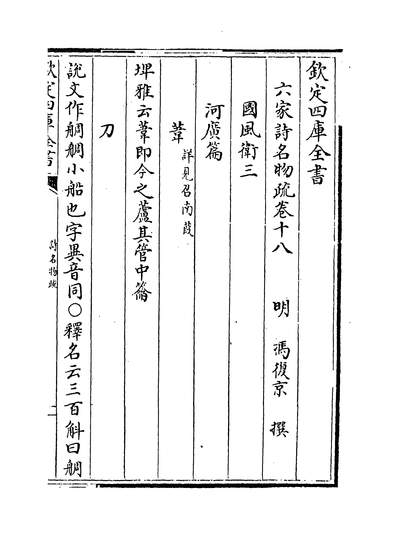 欽定四庫全書
六家詩名物疏卷十八
明 馮復京 撰
國風衛三
河廣篇
葦詳見召南葭
埤雅云葦即今之蘆其管中籥
刀
說文作鯛鯛小船也字異音同○釋名云三百斛曰鯛
欽定四庫全書
詩名物疏